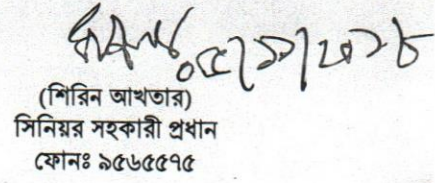 ০৫/১১/২০১৮
(শিরিন আখতার)
সিনিয়র সহকারী প্রধান
ফোনঃ ৯৫৬৫৫৭৫